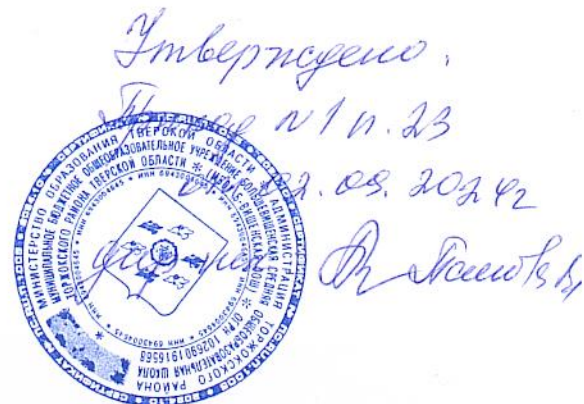 Утверждено.
Приказ №1 п. 23
02.09.2024г
директор
МИНИСТЕРСТВО ОБРАЗОВАНИЯ ТВЕРСКОЙ ОБЛАСТИ * АДМИНИСТРАЦИЯ ТОРЖОКСКОГО РАЙОНА
МУНИЦИПАЛЬНОЕ БЮДЖЕТНОЕ ОБЩЕОБРАЗОВАТЕЛЬНОЕ УЧРЕЖДЕНИЕ СРЕДНЯЯ ОБЩЕОБРАЗОВАТЕЛЬНАЯ ШКОЛА
ТОРЖОКСКОГО РАЙОНА ТВЕРСКОЙ ОБЛАСТИ
ОГРН 1026901916568
ИНН 6943004645 * ИНН 6943004645